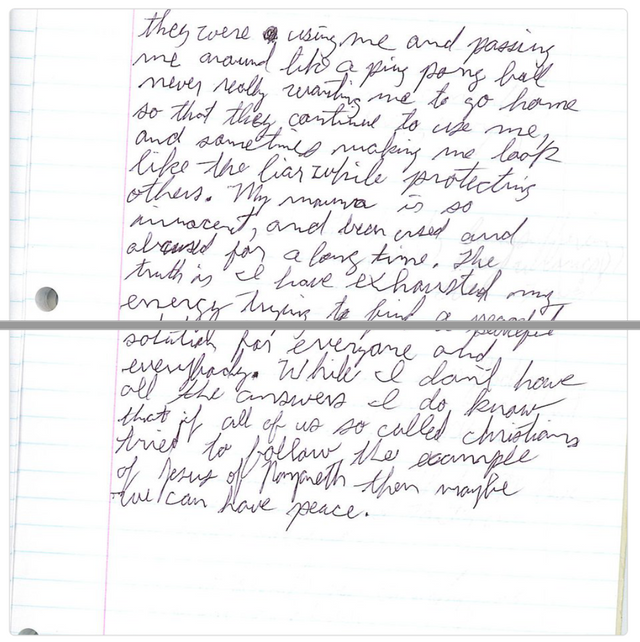 they were using me and passing
me around like a ping pong ball
never really wanting me to go home
so that they continue to use me,
and sometimes making me look
like the liar while protecting
others. My mama is so
innocent, and been used and
abused for a long time. The
truth is I have exhausted my
energy trying to find a peaceful
solution for everyone and
everybody. While I don't have
all the answers I do know
that if all of us so called christians
tried to follow the example
of Jesus of Nazareth then maybe
we can have peace.